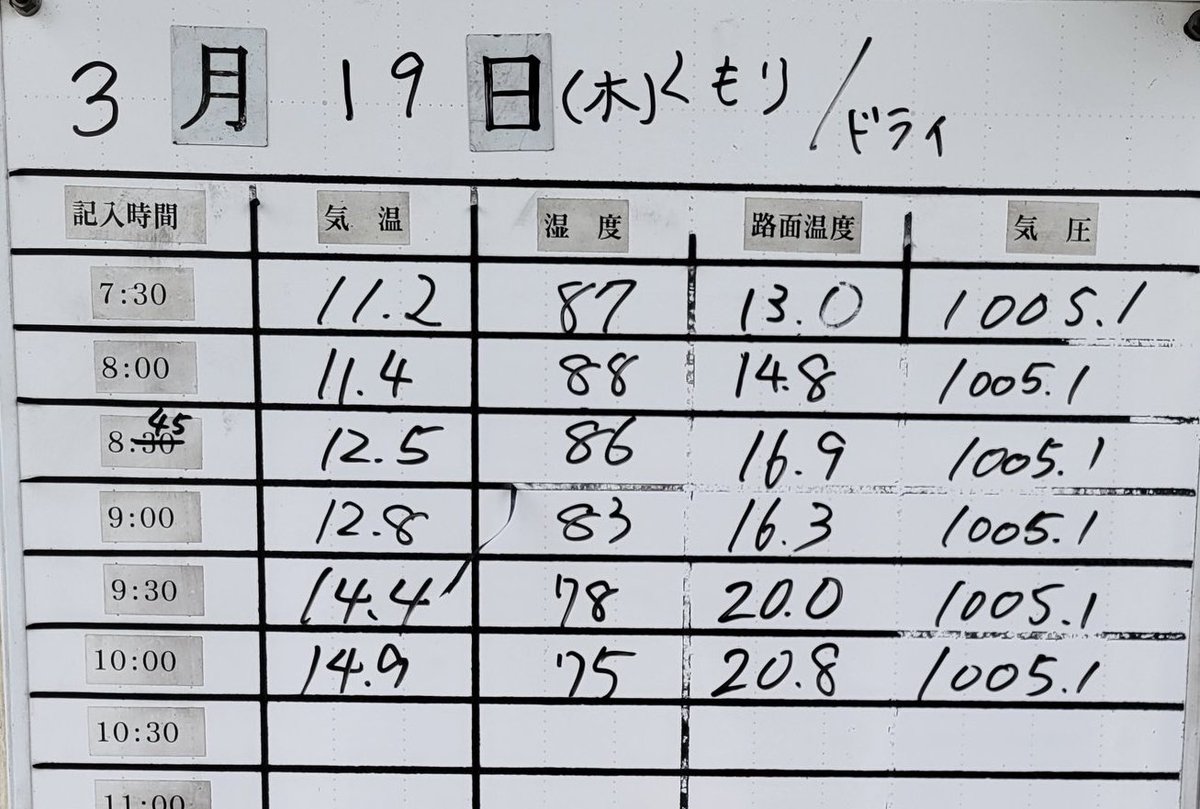 3月19日(木)くもり/ドライ
記入時間 気温 湿度 路面温度 気圧
7:30 11.2 87 13.0 1005.1
8:00 11.4 88 14.8 1005.1
8:45 12.5 86 16.9 1005.1
9:00 12.8 83 16.3 1005.1
9:30 14.4 78 20.0 1005.1
10:00 14.9 75 20.8 1005.1
10:30
11:00